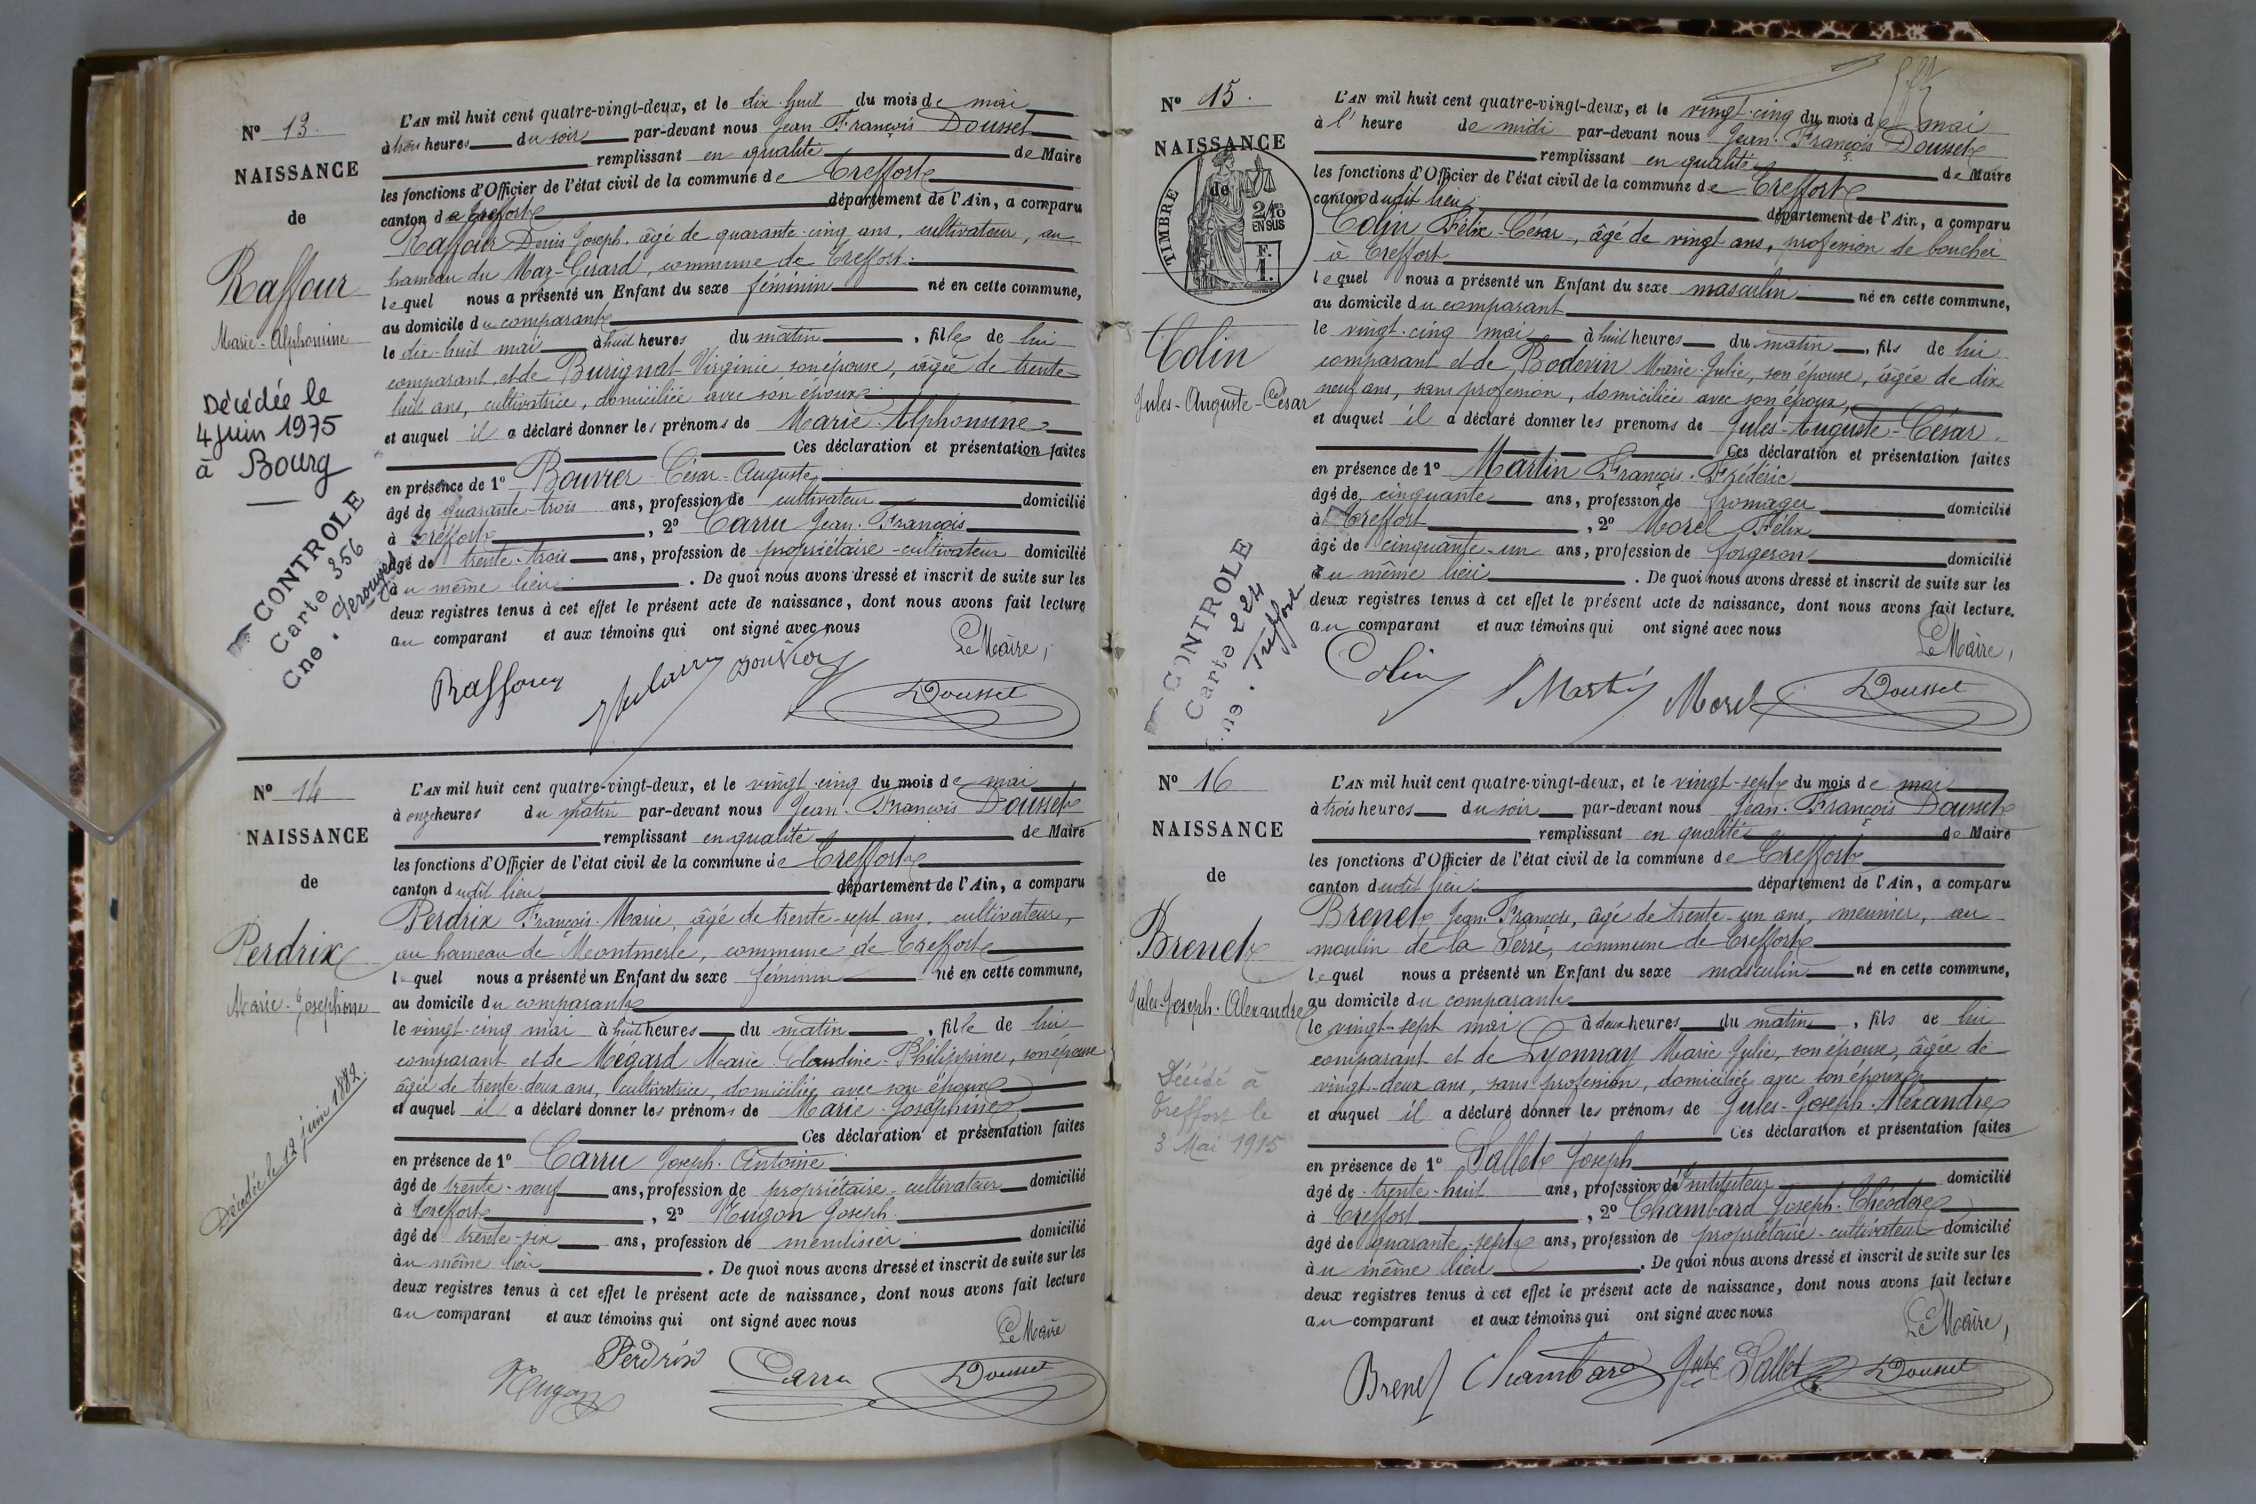 N° 13.
NAISSANCE
de
Raffour
Marie-Alphonsine
Décédée le
4 Juin 1975
à Bourg
CONTROLE
Carte 356
Cne.
L'AN mil huit cent quatre-vingt-deux, et le dix-huit du mois de mai
à trois heures du soir par-devant nous Jean François Dousset
remplissant en qualité de Maire
les fonctions d'Officier de l'état civil de la commune de Treffort
canton de Treffort département de l'Ain, a comparu
Raffour Denis Joseph, âgé de quarante-cinq ans, cultivateur, au
hameau du Mas-Girard, commune de Treffort.
lequel nous a présenté un Enfant du sexe féminin né en cette commune,
au domicile du comparant
le dix-huit mai à huit heures du matin, fille de lui
comparant et de Burignat Virginie son épouse, âgée de trente-
huit ans, cultivatrice, domiciliée avec son époux
et auquel il a déclaré donner les prénoms de Marie-Alphonsine
Ces déclaration et présentation faites
en présence de 1° Bouvier César-Auguste
âgé de quarante-trois ans, profession de cultivateur domicilié
à Treffort, 2° Carru Jean-François
âgé de trente-trois ans, profession de propriétaire-cultivateur domicilié
au même lieu. De quoi nous avons dressé et inscrit de suite sur les
deux registres tenus à cet effet le présent acte de naissance, dont nous avons fait lecture
au comparant et aux témoins qui ont signé avec nous
Le Maire,
Raffour Bouvier Dousset
N° 14
NAISSANCE
de
Perdrix
Marie-Josephine
Décédée le 12 juin 1882.
L'AN mil huit cent quatre-vingt-deux, et le vingt-cinq du mois de mai
à onze heures du matin par-devant nous Jean-François Dousset
remplissant en qualité de Maire
les fonctions d'Officier de l'état civil de la commune de Treffort
canton dudit lieu département de l'Ain, a comparu
Perdrix François-Marie, âgé de trente-sept ans, cultivateur,
au hameau de Montmerle, commune de Treffort
lequel nous a présenté un Enfant du sexe féminin né en cette commune,
au domicile du comparant
le vingt-cinq mai à huit heures du matin, fille de lui
comparant et de Mégard Marie-Claudine-Philippine, son épouse
âgée de trente-deux ans, cultivatrice, domiciliée avec son époux
et auquel il a déclaré donner les prénoms de Marie-Joséphine
Ces déclaration et présentation faites
en présence de 1° Carru Joseph-Antoine
âgé de trente-neuf ans, profession de propriétaire-cultivateur domicilié
à Treffort, 2° Nugon Joseph
âgé de trente-six ans, profession de menuisier domicilié
au même lieu. De quoi nous avons dressé et inscrit de suite sur les
deux registres tenus à cet effet le présent acte de naissance, dont nous avons fait lecture
au comparant et aux témoins qui ont signé avec nous
Le Maire
Nugon Perdrix Carru Dousset
N° 15.
NAISSANCE
de
TIMBRE
2/10 EN SUS
F. 1.
Colin
Jules-Auguste-César
CONTROLE
Carte 224
Cne. Treffort
L'AN mil huit cent quatre-vingt-deux, et le vingt-cinq du mois de mai
à l'heure de midi par-devant nous Jean-François Dousset
remplissant en qualité de Maire
les fonctions d'Officier de l'état civil de la commune de Treffort
canton dudit lieu département de l'Ain, a comparu
Colin Félix-César, âgé de vingt ans, profession de boucher
à Treffort
lequel nous a présenté un Enfant du sexe masculin né en cette commune,
au domicile du comparant
le vingt-cinq mai à huit heures du matin, fils de lui
comparant et de Bodevin Marie-Julie, son épouse, âgée de dix
neuf ans, sans profession, domiciliée avec son époux,
et auquel il a déclaré donner les prenoms de Jules-Auguste-César.
Ces déclaration et présentation faites
en présence de 1° Martin François-Frédéric
âgé de cinquante ans, profession de fromager domicilié
à Treffort, 2° Morel Félix
âgé de cinquante-un ans, profession de forgeron domicilié
au même lieu. De quoi nous avons dressé et inscrit de suite sur les
deux registres tenus à cet effet le présent acte de naissance, dont nous avons fait lecture.
au comparant et aux témoins qui ont signé avec nous
Le Maire,
Colin F Martin Morel Dousset
N° 16
NAISSANCE
de
Brenet
Jules-Joseph-Alexandre
Décédé à
Treffort le
3 Mai 1915
L'AN mil huit cent quatre-vingt-deux, et le vingt-sept du mois de mai
à trois heures du soir par-devant nous Jean-François Dousset
remplissant en qualité de Maire
les fonctions d'Officier de l'état civil de la commune de Treffort
canton dudit lieu département de l'Ain, a comparu
Brenet Jean-François, âgé de trente-un ans, meunier, au
moulin de la Serre, commune de Treffort
lequel nous a présenté un Enfant du sexe masculin né en cette commune,
au domicile du comparant
le vingt-sept mai à deux heures du matin, fils de lui
comparant et de Lyonnay Marie Julie, son épouse, âgée de
vingt-deux ans, sans profession, domiciliée avec son époux
et auquel il a déclaré donner les prénoms de Jules-Joseph-Alexandre
Ces déclaration et présentation faites
en présence de 1° Sallet Joseph
âgé de trente-huit ans, profession d'Instituteur domicilié
à Treffort, 2° Chambard Joseph-Théodore
âgé de quarante-sept ans, profession de propriétaire-cultivateur domicilié
au même lieu. De quoi nous avons dressé et inscrit de suite sur les
deux registres tenus à cet effet le présent acte de naissance, dont nous avons fait lecture
au comparant et aux témoins qui ont signé avec nous
Le Maire,
Brenet Chambard Jph Sallet Dousset